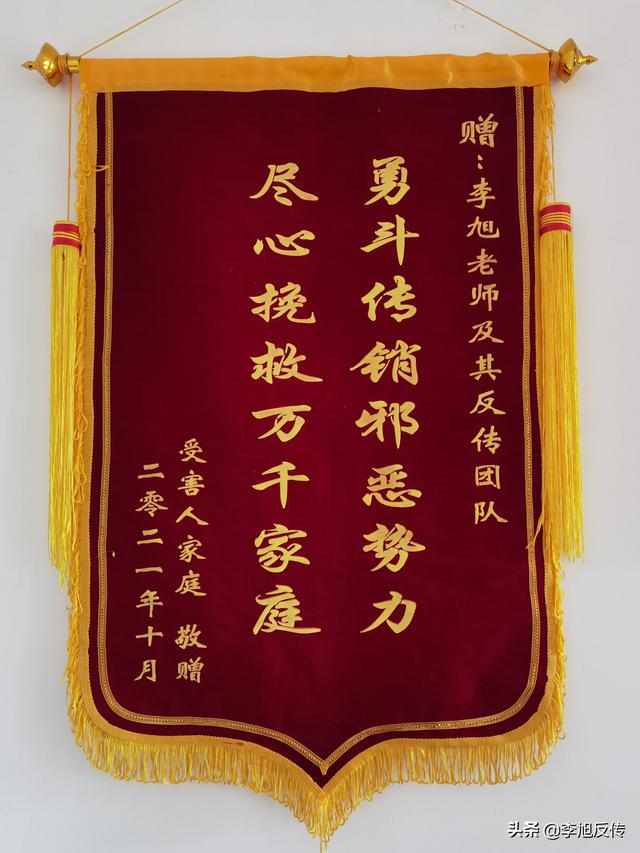 赠：李旭老师及其反传团队
勇斗传销邪恶势力
尽心挽救万千家庭
受害人家庭 敬赠
二零二一年十月
头条 @李旭反传